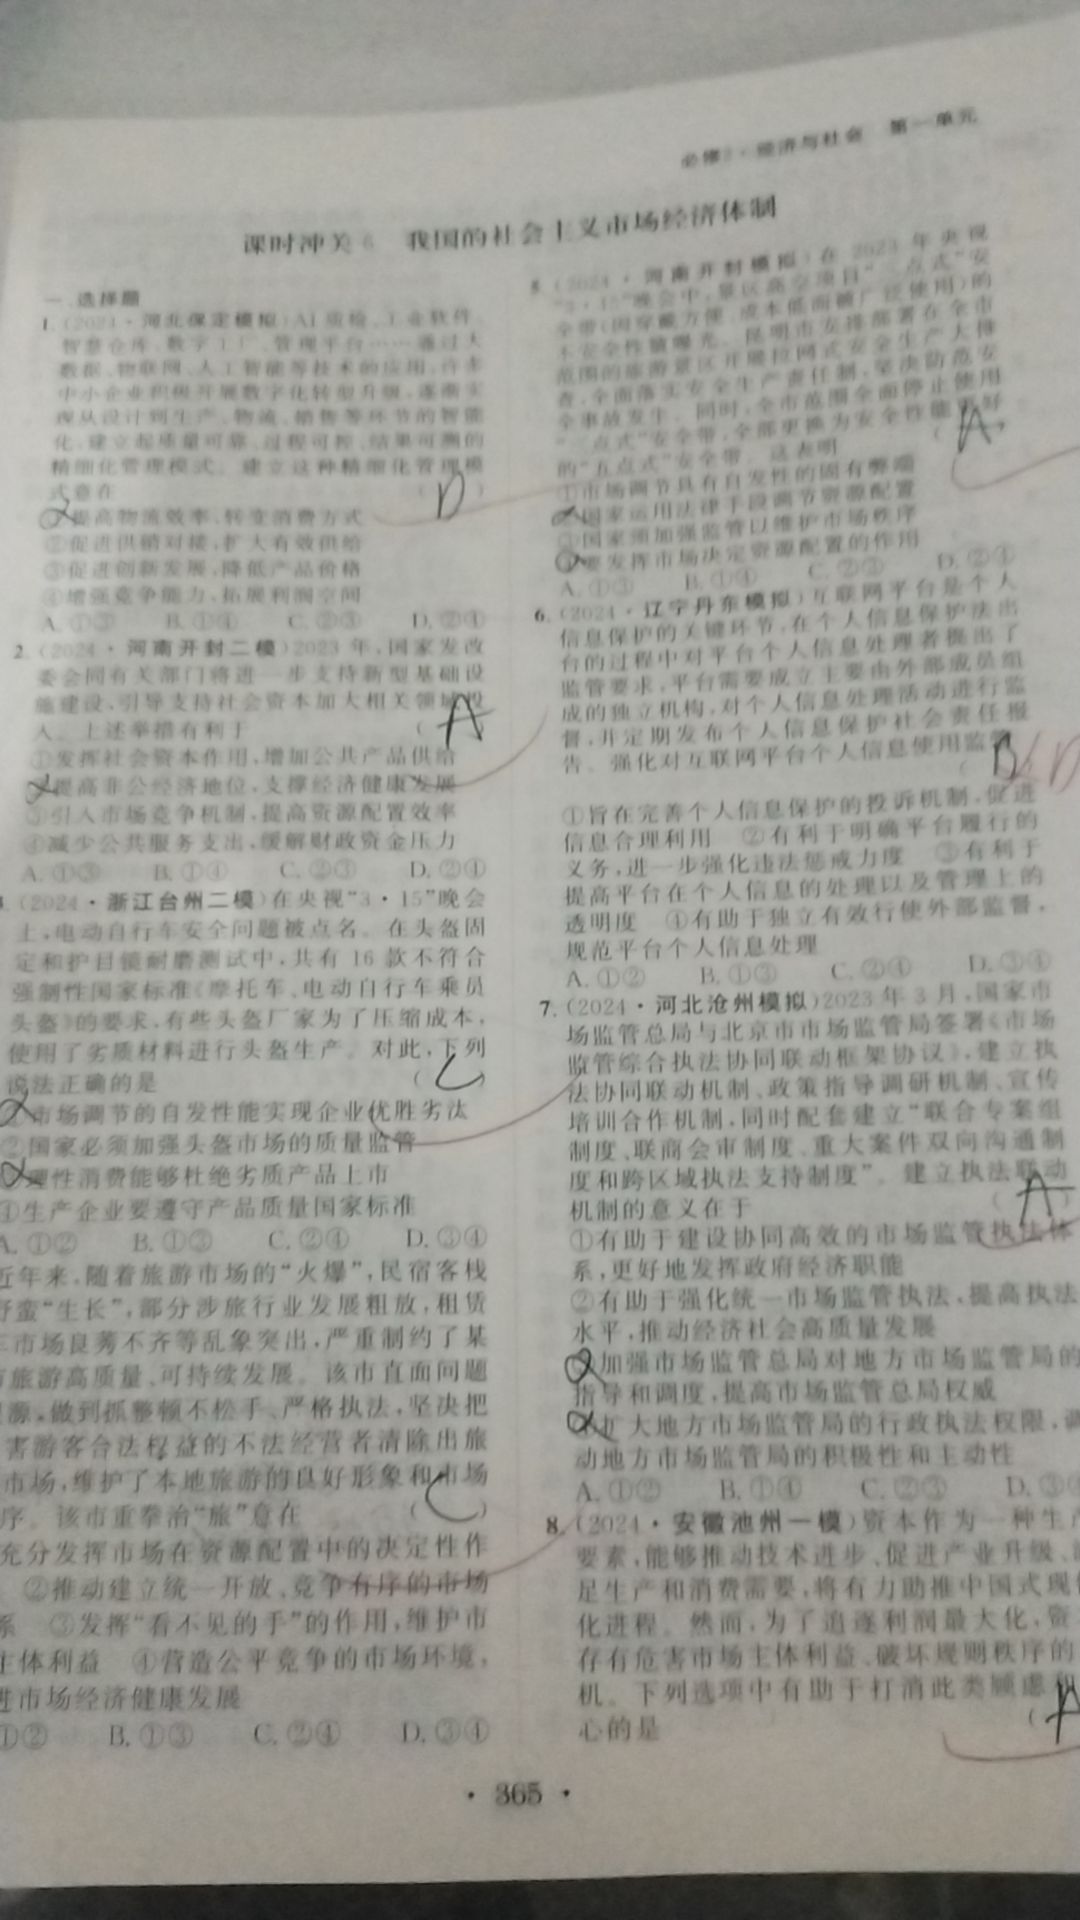 必修2·经济与社会 第一单元
课时冲关6 我国的社会主义市场经济体制
一、选择题
1.(2024·河北保定模拟)AI质检、工业软件、
智慧仓库、数字工厂、管理平台……通过大
数据、物联网、人工智能等技术的应用,许多
中小企业积极开展数字化转型升级,逐渐实
现从设计到生产、物流、销售等环节的智能
化,建立起质量可靠、过程可控、结果可测的
精细化管理模式。建立这种精细化管理模
式意在 ( D )
①提高物流效率,转变消费方式
②促进供销对接,扩大有效供给
③促进创新发展,降低产品价格
④增强竞争能力,拓展利润空间
A.①③ B.①④ C.②③ D.②④
2.(2024·河南开封二模)2023年,国家发改
委会同有关部门将进一步支持新型基础设
施建设,引导支持社会资本加大相关领域投
入。上述举措有利于 ( A
①发挥社会资本作用,增加公共产品供给
②提高非公经济地位,支撑经济健康发展
③引入市场竞争机制,提高资源配置效率
④减少公共服务支出,缓解财政资金压力
A.①③ B.①④ C.②③ D.②④
(2024·浙江台州二模)在央视“3·15”晚会
上,电动自行车安全问题被点名。在头盔固
定和护目镜耐磨测试中,共有16款不符合
强制性国家标准《摩托车、电动自行车乘员
头盔》的要求,有些头盔厂家为了压缩成本,
使用了劣质材料进行头盔生产。对此,下列
说法正确的是 ( C )
①市场调节的自发性能实现企业优胜劣汰
②国家必须加强头盔市场的质量监管
③理性消费能够杜绝劣质产品上市
④生产企业要遵守产品质量国家标准
A.①② B.①③ C.②④ D.③④
近年来,随着旅游市场的“火爆”,民宿客栈
野蛮“生长”,部分涉旅行业发展粗放,租赁
市场良莠不齐等乱象突出,严重制约了某
旅游高质量、可持续发展。该市直面问题
源,做到抓整顿不松手、严格执法,坚决把
害游客合法权益的不法经营者清除出旅
市场,维护了本地旅游的良好形象和市场
序。该市重拳治“旅”意在 ( C )
充分发挥市场在资源配置中的决定性作
②推动建立统一开放、竞争有序的市场
系 ③发挥“看不见的手”的作用,维护市
主体利益 ④营造公平竞争的市场环境,
进市场经济健康发展
①② B.①③ C.②④ D.③④
5.(2024·河南开封模拟)在2023年央视
“3·15”晚会中,景区高空项目“三点式”安
全带(因穿戴方便、成本低而被广泛使用)的
不安全性被曝光。昆明市安排部署在全市
范围的旅游景区开展拉网式安全生产大排
查,全面落实安全生产责任制,坚决防范安
全事故发生。同时,全市范围全面停止使用
“三点式”安全带,全部更换为安全性能更好
的“五点式”安全带。这表明 ( A
①市场调节具有自发性的固有弊端
②国家运用法律手段调节资源配置
③国家须加强监管以维护市场秩序
④要发挥市场决定资源配置的作用
A.①③ B.①④ C.②③ D.②④
6.(2024·辽宁丹东模拟)互联网平台是个人
信息保护的关键环节,在个人信息保护法出
台的过程中对平台个人信息处理者提出了
监管要求,平台需要成立主要由外部成员组
成的独立机构,对个人信息处理活动进行监
督,并定期发布个人信息保护社会责任报
告。强化对互联网平台个人信息使用监督
( B D
①旨在完善个人信息保护的投诉机制,促进
信息合理利用 ②有利于明确平台履行的
义务,进一步强化违法惩戒力度 ③有利于
提高平台在个人信息的处理以及管理上的
透明度 ④有助于独立有效行使外部监督,
规范平台个人信息处理
A.①② B.①③ C.②④ D.③④
7.(2024·河北沧州模拟)2023年3月,国家市
场监管总局与北京市市场监管局签署《市场
监管综合执法协同联动框架协议》,建立执
法协同联动机制、政策指导调研机制、宣传
培训合作机制,同时配套建立“联合专案组
制度、联商会审制度、重大案件双向沟通制
度和跨区域执法支持制度”。建立执法联动
机制的意义在于 ( A )
①有助于建设协同高效的市场监管执法体
系,更好地发挥政府经济职能
②有助于强化统一市场监管执法,提高执法
水平,推动经济社会高质量发展
③加强市场监管总局对地方市场监管局的
指导和调度,提高市场监管总局权威
④扩大地方市场监管局的行政执法权限,调
动地方市场监管局的积极性和主动性
A.①② B.①④ C.②③ D.③
8.(2024·安徽池州一模)资本作为一种生产
要素,能够推动技术进步、促进产业升级、
足生产和消费需要,将有力助推中国式现
化进程。然而,为了追逐利润最大化,资
存有危害市场主体利益、破坏规则秩序的
机。下列选项中有助于打消此类顾虑
心的是 ( A
·365·